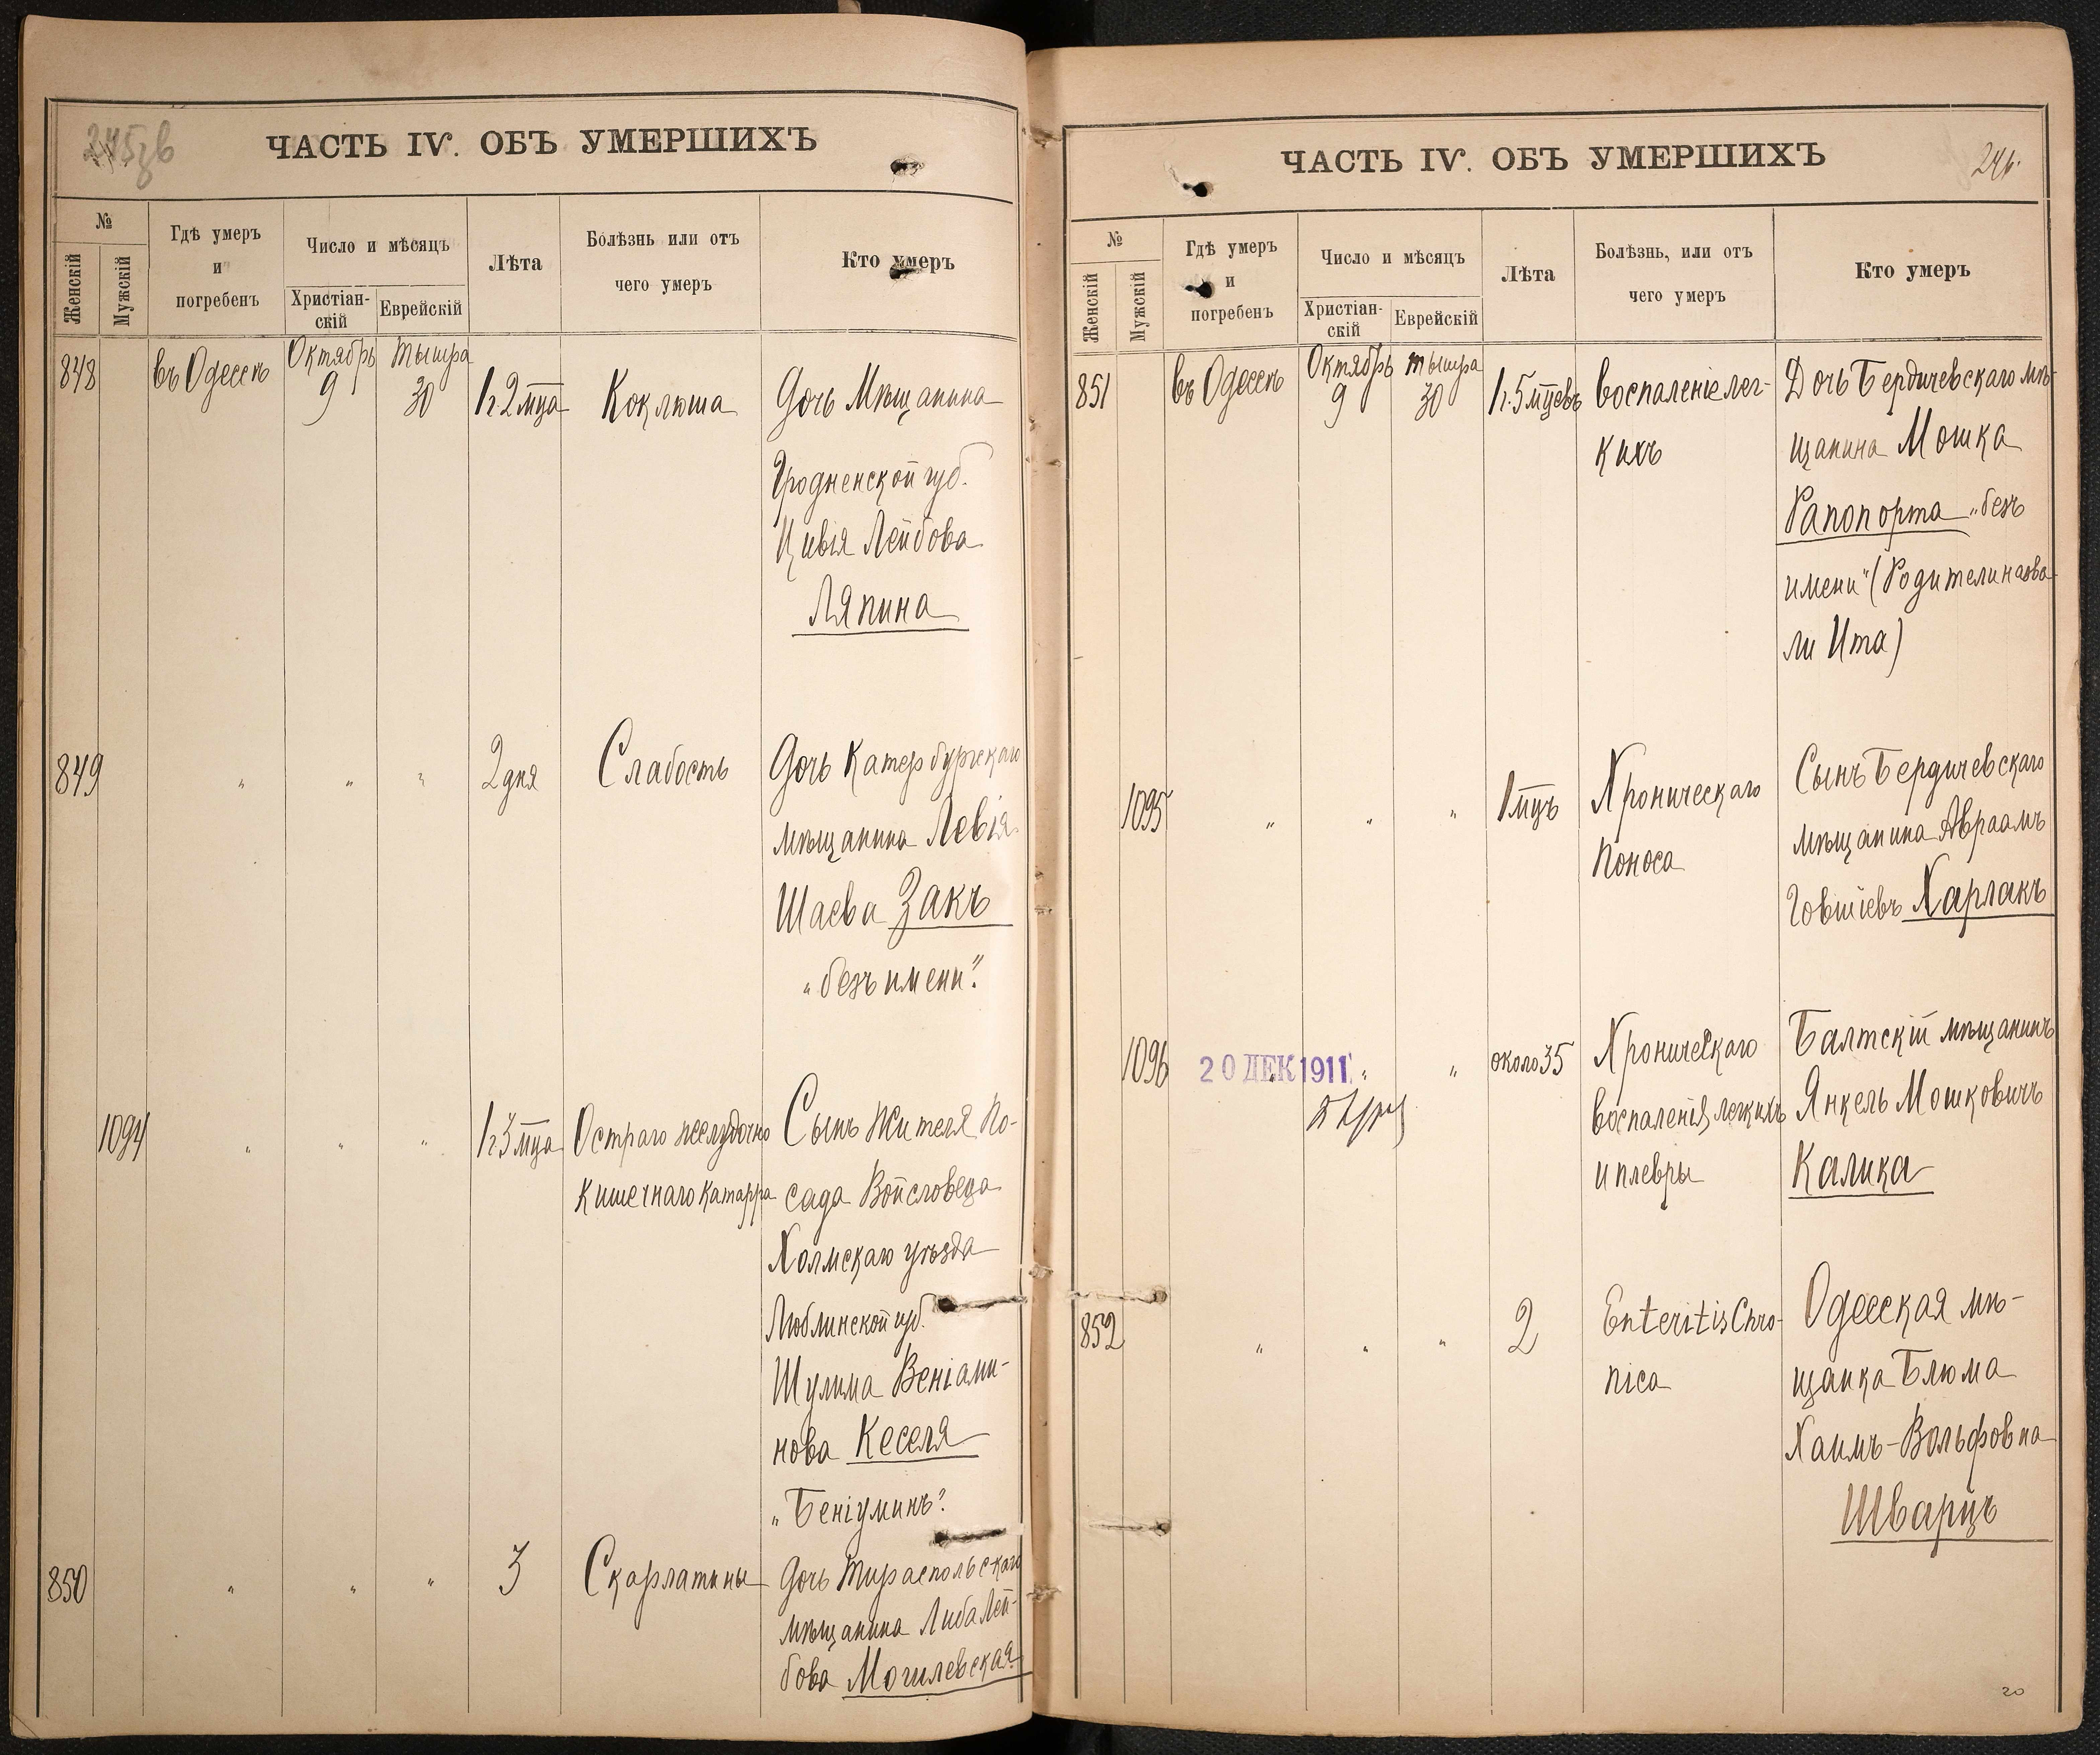 245зв
ЧАСТЬ IV. ОБЪ УМЕРШИХЪ
№
Женскій
Мужскій
Гдѣ умеръ
и
погребенъ
Число и мѣсяцъ
Христіан-
скій
Еврейскій
Лѣта
Болѣзнь или отъ
чего умеръ
Кто умеръ
848
въ Одессѣ
Октябрь
9
Тышра
30
1 г. 2 мца
Коклюша
Дочь Мѣщанина
Гродненской губ.
Цивія Лейбова
Ляпина
849
„ „ „
2 дня
Слабость
Дочь Катербургскаго
мѣщанина Левія
Шаева Закъ
„безъ имени".
1094
„ „ „
1 г. 3 мца
Остраго желудочно
кишечнаго катарра
Сынъ Жителя По-
сада Войсловеца
Холмскаго уѣзда
Люблинской губ.
Шулима Веніами-
нова Кеселя
„Беніуминъ".
850
„ „ „
3
Скарлатины
Дочь Тираспольскаго
мѣщанина Либа Лей-
бова Могилевская
ЧАСТЬ IV. ОБЪ УМЕРШИХЪ
246.
№
Женскій
Мужскій
Гдѣ умеръ
и
погребенъ
Число и мѣсяцъ
Христіан-
скій
Еврейскій
Лѣта
Болѣзнь, или отъ
чего умеръ
Кто умеръ
851
въ Одессѣ
Октябрь
9
тышра
30
1 г. 5 мцевъ
воспаленіе лег-
кихъ
Дочь Бердичевскаго мѣ-
щанина Мошка
Рапопорта „безъ
имени" (Родители назва-
ли Ита)
1095
„ „ „
1 мцъ
Хроническаго
поноса
Сынъ Бердичевскаго
мѣщанина Авраамъ
Говшіевъ Харлакъ
1096
20 ДЕК 1911
„ „ „
около 35
Хроническаго
воспаленія легкихъ
и плевры
Балтскій мѣщанинъ
Янкель Мошковичъ
Калика
852
„ „ „
2
Enteritis Chro-
nica
Одесская мѣ-
щанка Блюма
Хаимъ-Вольфовна
Шварцъ
20